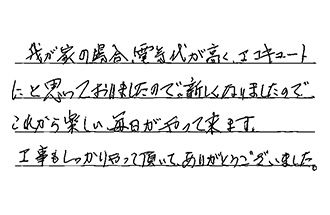 我が家の場合、電気代が高く、エコキュート
にと思っておりましたので、新しくなりましたので
これから楽しい毎日がやって来ます。
工事もしっかりやって頂いて、ありがとうございました。